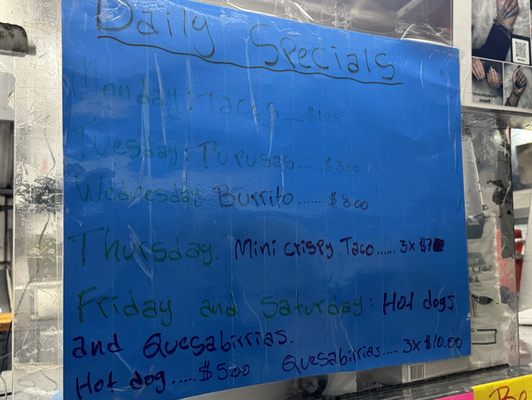 Daily Specials
Monday: Tacos.....$1.25
Tuesday: Pupusas......$3.00
Wednesday: Burrito.......$8.00
Thursday: Mini crispy Taco.....3x$7
Friday and Saturday: Hot dogs
and Quesabirrias.
Hot dog.....$5.00 Quesabirrias....3x$10.00